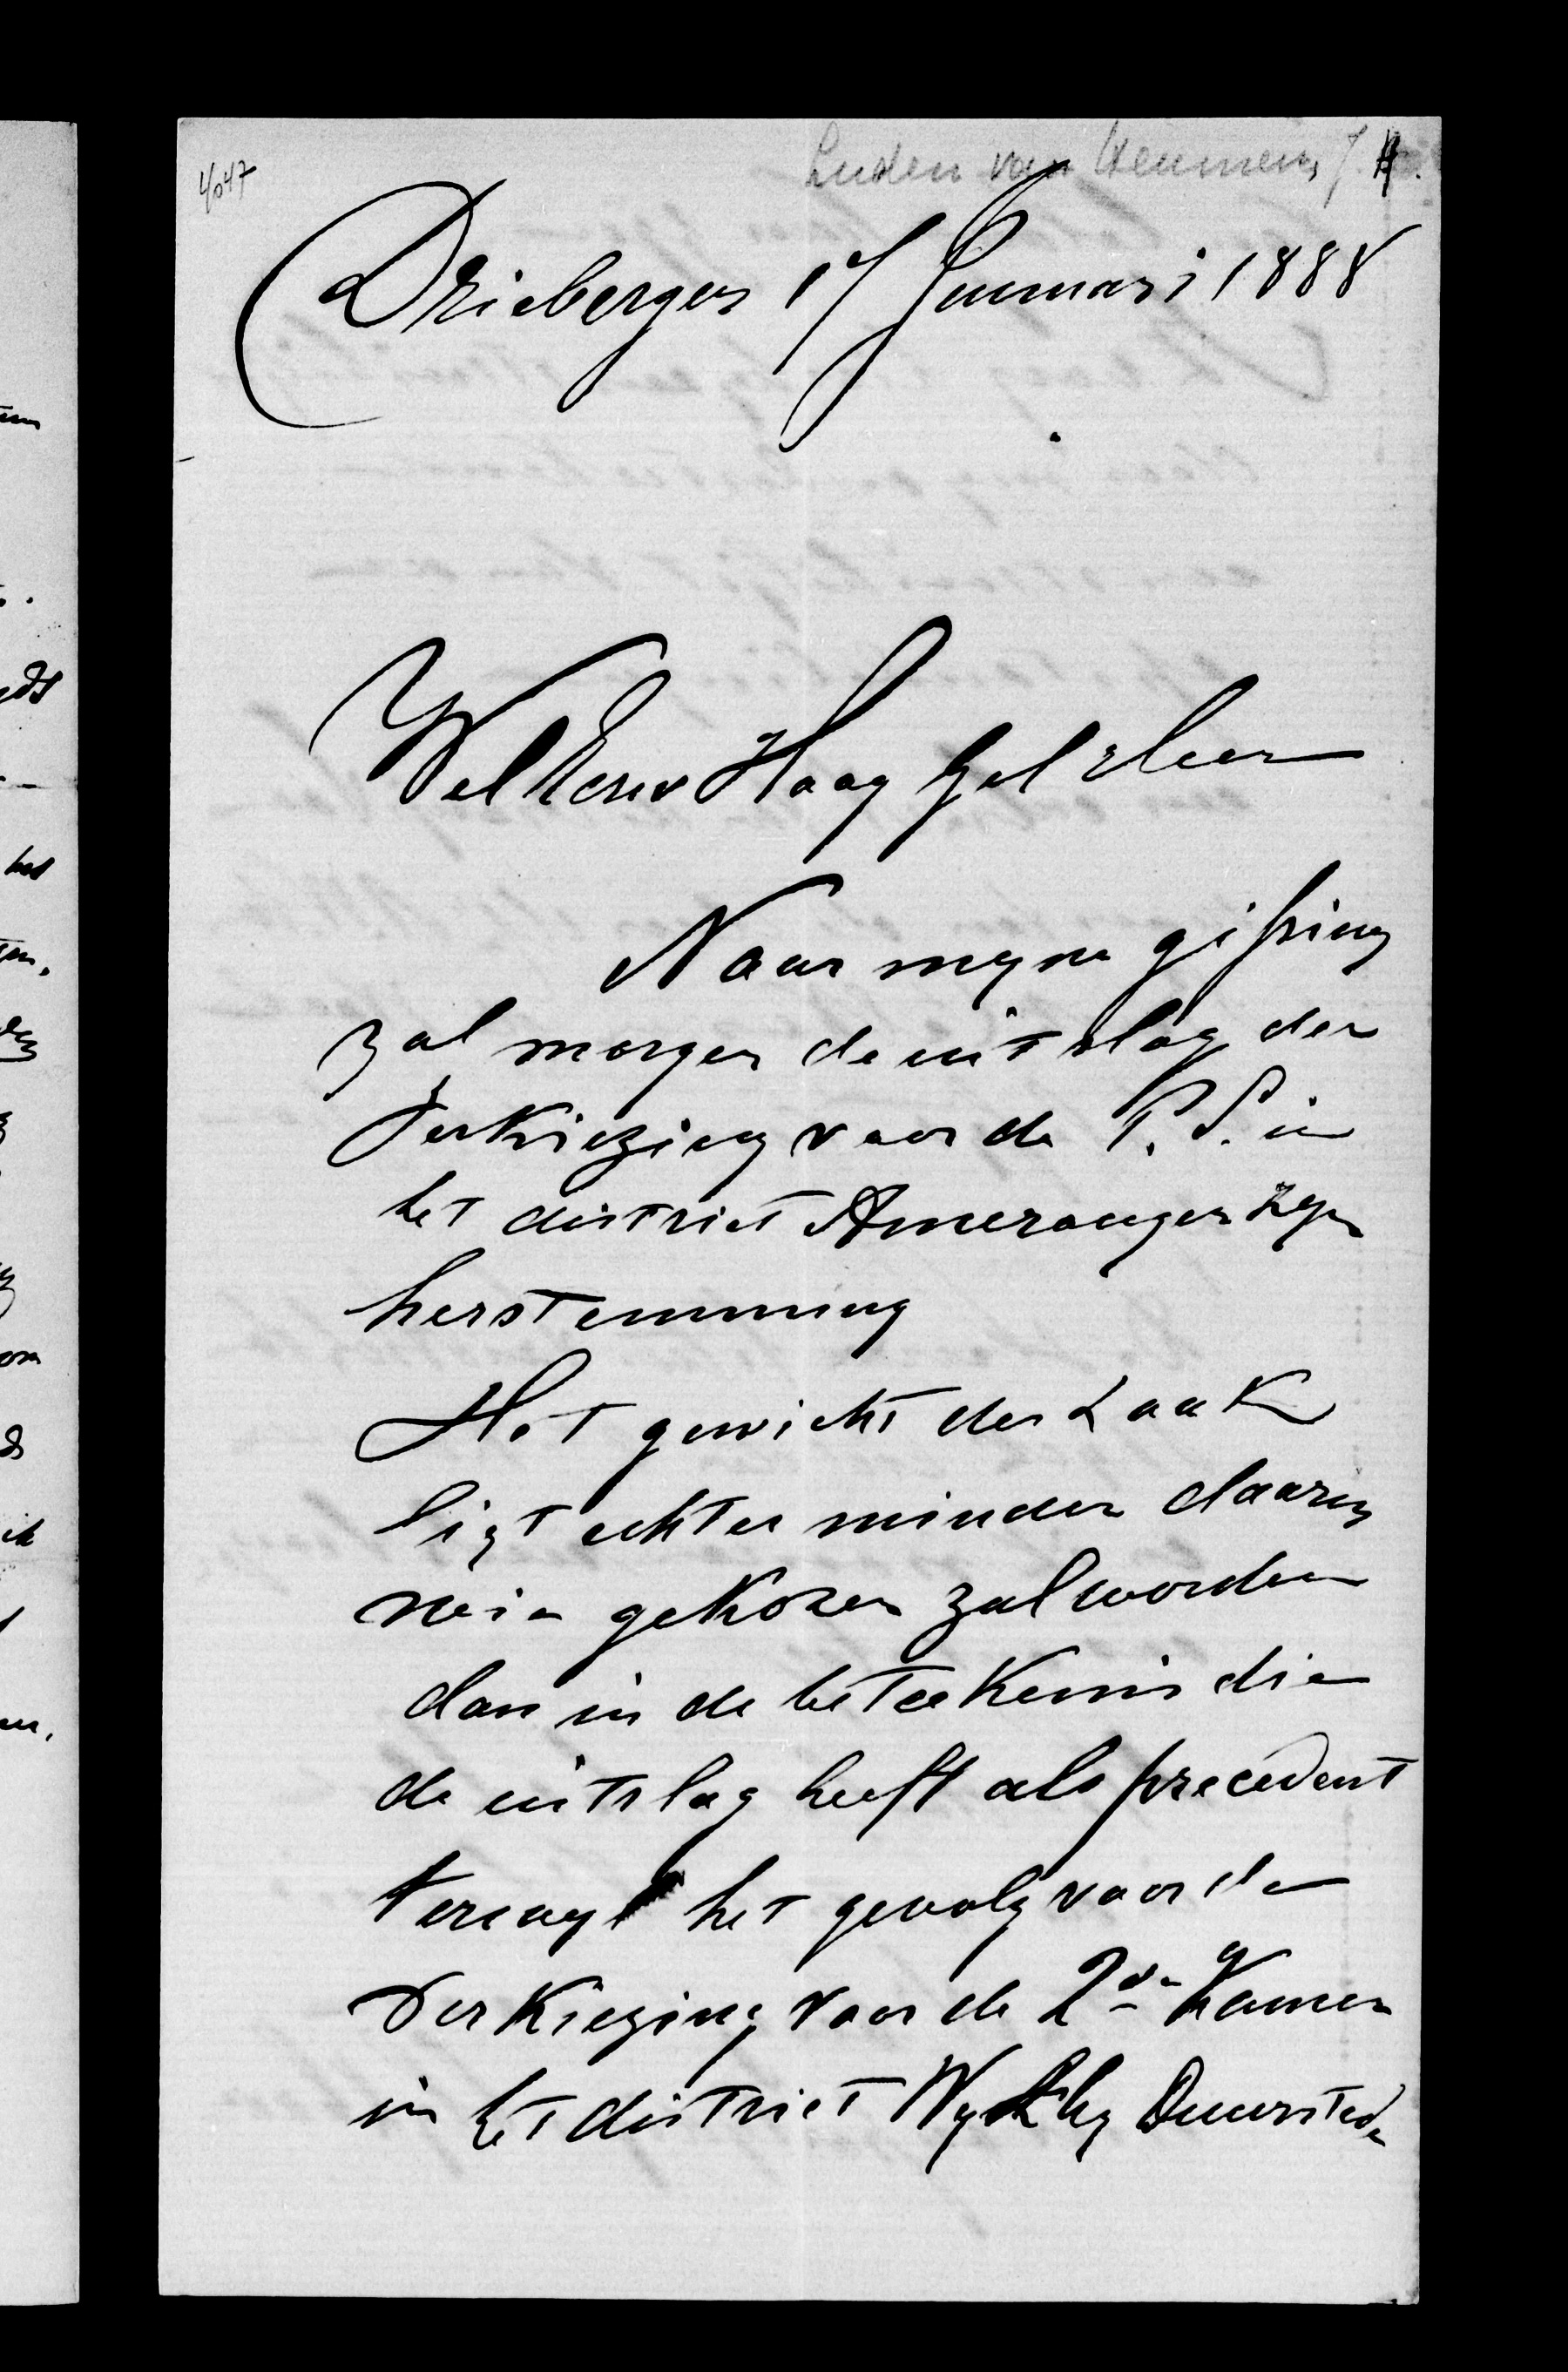 4047
Luden van Heumen, J. H.
Driebergen 17 Januari 1888
WelEerw Hoog Gel Heer
Naar myne gissing
zal morgen de uitslag der
Verkiezing voor de P. S. in
het district Amerongen zyn
herstemming
Het gewicht der zaak
ligt echter minder daarin
wie gekozen zal worden
dan in de beteekenis die
de uitslag heeft als precedent
terwyl het gevolg voor de
Verkiezing voor de 2de Kamer
in het district Wyk by Duurstede